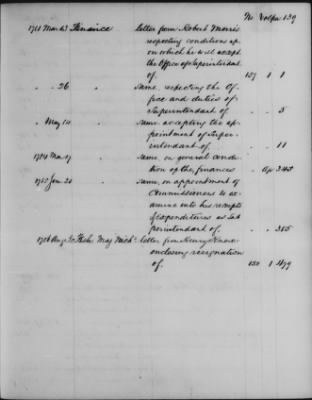 No Vol pa. 139
1781 Mar 13 Finance letter from Robert Morris
respecting conditions up-
on which he will accept
the Office of Superintendant
of. 137 1 1
" " 26 " same, respecting the Of-
fice and duties of
Superintendant of " " 5
" May 14 " same accepting the ap-
pointment of Super-
intendant of. " " 11
1784 Mar 17 " same, on general condi-
tion of the finances " Ap
1785 Jan 20 " same, on appointment of
Commissioners to ex-
amine into his receipts
& expenditures as Su-
perintendant of. " "
1786 Aug letter from Henry
enclosing resignation
of. 150 1 499